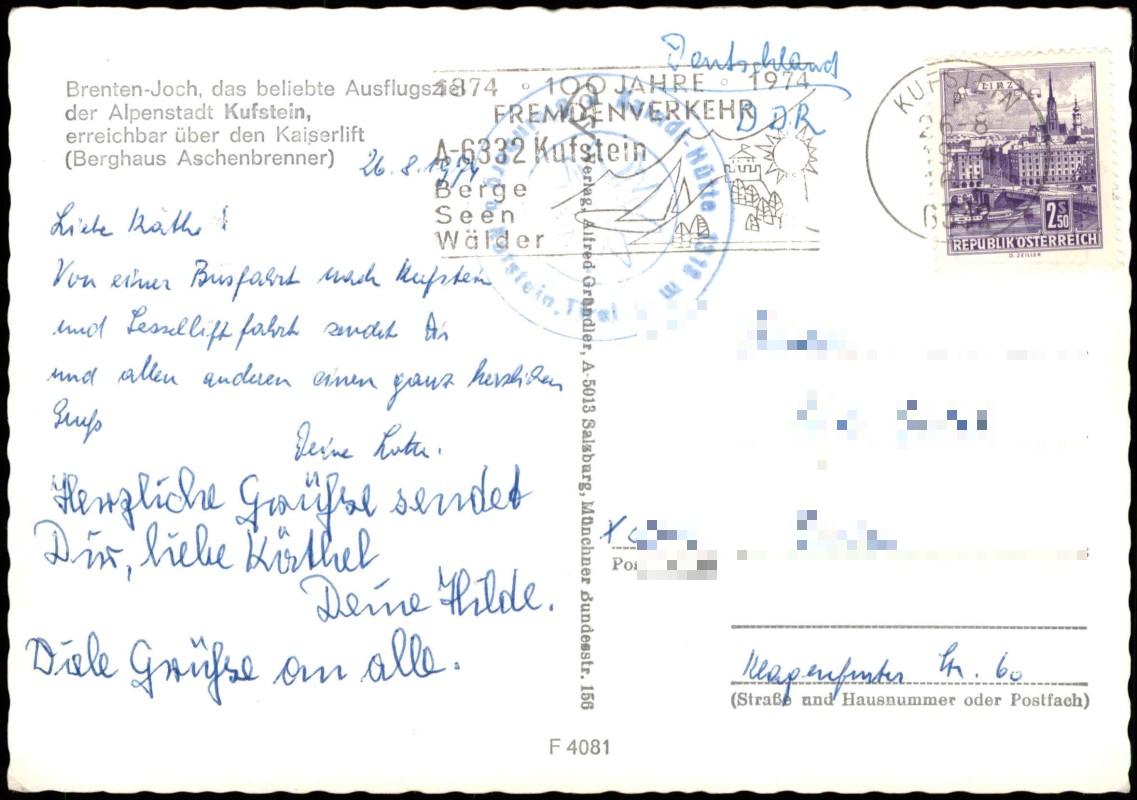 Brenten-Joch, das beliebte Ausflugsziel
der Alpenstadt Kufstein,
erreichbar über den Kaiserlift
(Berghaus Aschenbrenner)
26. 8. 1974
Liebe Käthe!
Von einer Busfahrt nach Kufstein
und Sessellift fahrt sendet Dir
und allen anderen einen ganz herzlichen
Gruß
Deine Lotte.
Herzliche Grüße sendet
Dir, liebe Käthel
Deine Hilde.
Viele Grüße an alle.
Verlag Alfred Gründler, A-5013 Salzburg, Münchner Bundesstr. 156
F 4081
1874 ◦ 100 JAHRE ◦ 1974
FREMDENVERKEHR
A-6332 Kufstein
Berge
Seen
Wälder
Kufstein, Tirol
Hütte 1318 m
Deutschland
DDR
KUFSTEIN
LINZ
2 S 50
REPUBLIK ÖSTERREICH
O. ZEILLER
X
Klagenfurter Str. 60
(Straße und Hausnummer oder Postfach)